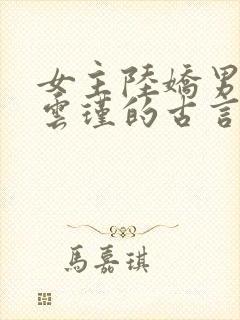 女主陸嬌男
雲瑾的古言
馬嘉琪